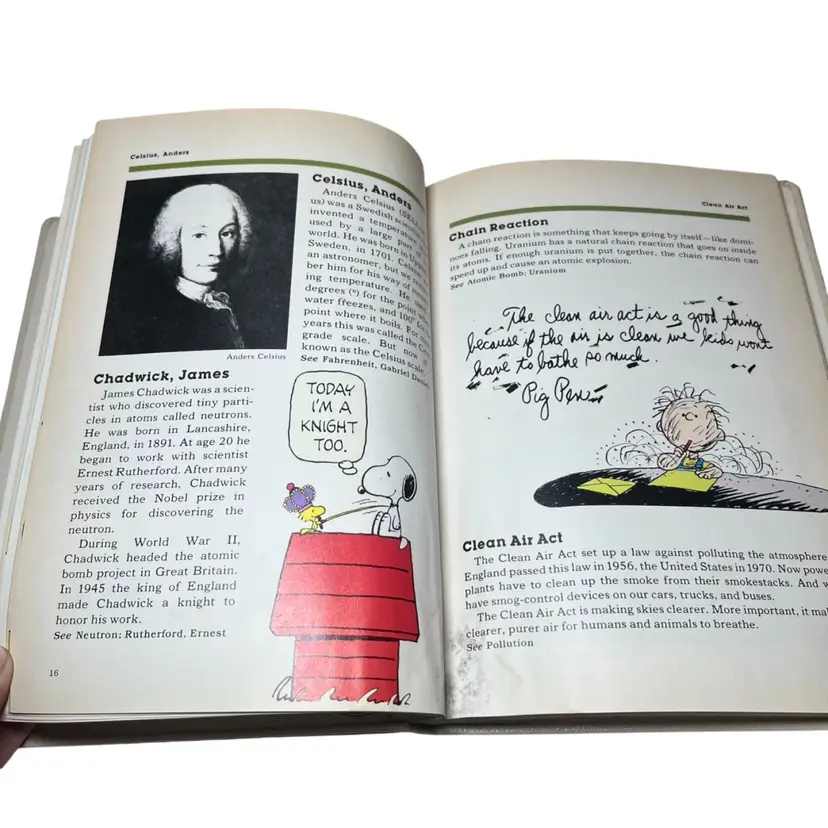 Celsius, Anders
Celsius, Anders
Anders Celsius (SELL
us) was a Swedish scien
invented a temperature
used by a large part of
world. He was born in
Sweden, in 1701. Celsius
an astronomer, but we
ber him for his way of
ing temperature. He
degrees (°) for the point
water freezes, and 100° for
point where it boils. For
years this was called the
grade scale. But now
known as the Celsius scale.
See Fahrenheit, Gabriel Daniel
Anders Celsius
Chadwick, James
James Chadwick was a scien-
tist who discovered tiny parti-
cles in atoms called neutrons.
He was born in Lancashire,
England, in 1891. At age 20 he
began to work with scientist
Ernest Rutherford. After many
years of research, Chadwick
received the Nobel prize in
physics for discovering the
neutron.
During World War II,
Chadwick headed the atomic
bomb project in Great Britain.
In 1945 the king of England
made Chadwick a knight to
honor his work.
See Neutron; Rutherford, Ernest
TODAY
I'M A
KNIGHT
TOO.
16
Clean Air Act
Chain Reaction
A chain reaction is something that keeps going by itself—like domi-
noes falling. Uranium has a natural chain reaction that goes on inside
its atoms. If enough uranium is put together, the chain reaction can
speed up and cause an atomic explosion.
See Atomic Bomb; Uranium
The clean air act is a good thing
because if the air is clean we kids wont
have to bathe so much.
Pig Pen
Clean Air Act
The Clean Air Act set up a law against polluting the atmosphere
England passed this law in 1956, the United States in 1970. Now power
plants have to clean up the smoke from their smokestacks. And
have smog-control devices on our cars, trucks, and buses.
The Clean Air Act is making skies clearer. More important, it
clearer, purer air for humans and animals to breathe.
See Pollution